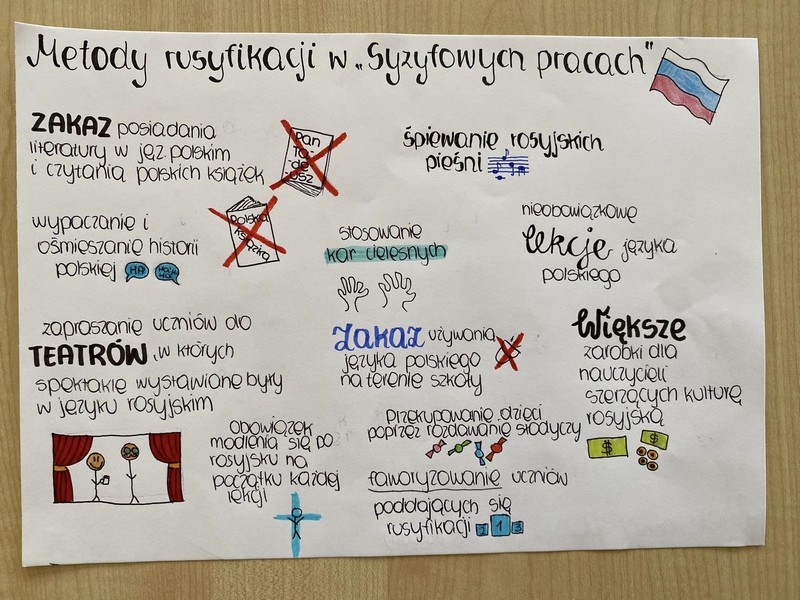 Metody rusyfikacji w „Syzyfowych pracach"
ZAKAZ posiadania
literatury w jęz. polskim
i czytania polskich książek
Pan
Ta-
-de-
-usz
śpiewanie rosyjskich
pieśni
wypaczanie i
ośmieszanie historii
polskiej
HA!
HA!HA
HA!
Polska
książka
stosowanie
kar cielesnych
nieobowiązkowe
lekcje języka
polskiego
zapraszanie uczniów do
TEATRÓW, w których
spektakle wystawione były
w języku rosyjskim
Zakaz używania
języka polskiego
na terenie szkoły
Większe
zarobki dla
nauczycieli
szerzących kulturę
rosyjską
$
$
Obowiązek
modlenia się po
rosyjsku na
początku każdej
lekcji
Przekupowanie dzieci
poprzez rozdawanie słodyczy
faworyzowanie uczniów
poddających się
rusyfikacji
2 1 3